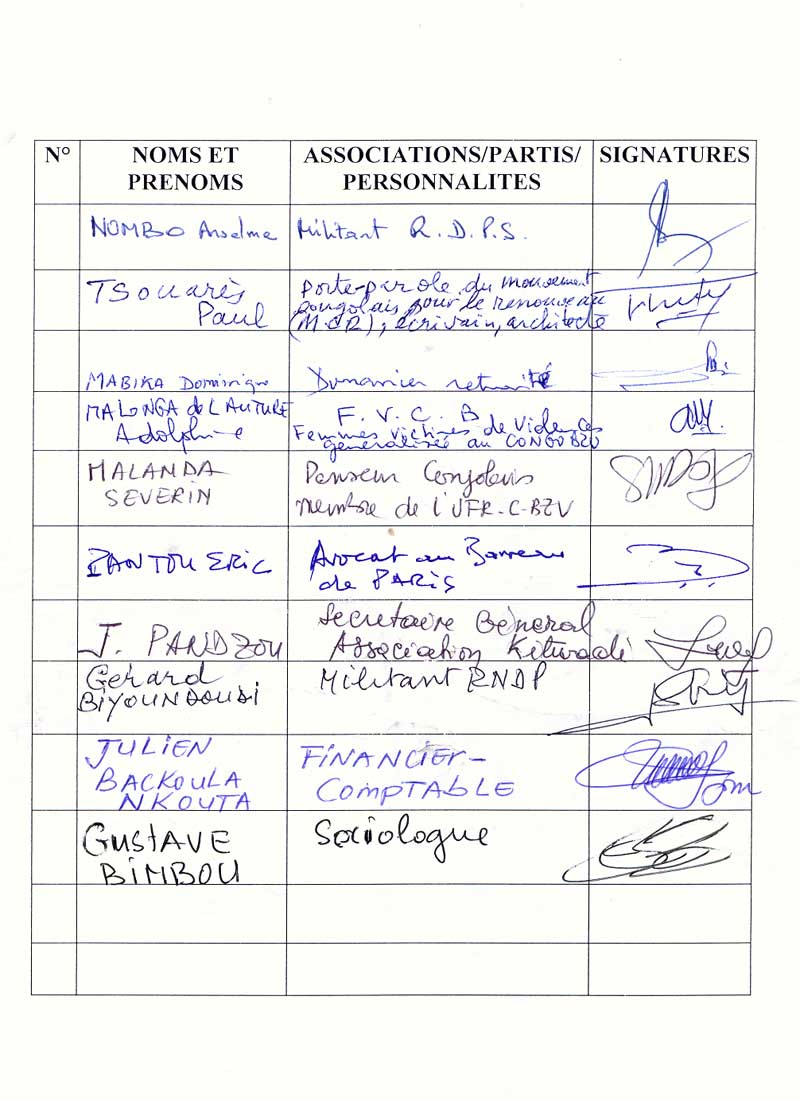 N° NOMS ET PRENOMS ASSOCIATIONS/PARTIS/ PERSONNALITES SIGNATURES
NOMBO Anselme Militant R.D.P.S.
TSouarès
Paul
porte-parole du mouvement
congolais pour le renouveau
(MCR), écrivain, architecte
MABIKA Dominique retraité
MALONGA de LAUTURE
Adolphine
F.V.C.B
Femmes victimes de Violences
généralisée au CONGO BZV
MALANDA
SEVERIN
Penseur Congolais
membre de l'UFR-C-BZV
ERIC
Avocat au Barreau
de PARIS
J. PANDZOU
Secretaire Géneral
Association Kitwadi
Gérard
BiYOUNDOUDI
Militant RNDP
JULiEN
BACKOULA
NKOUTA
FiNANCiER-
COMPTABLE
GUSTAVE
BiMBOU
Sociologue